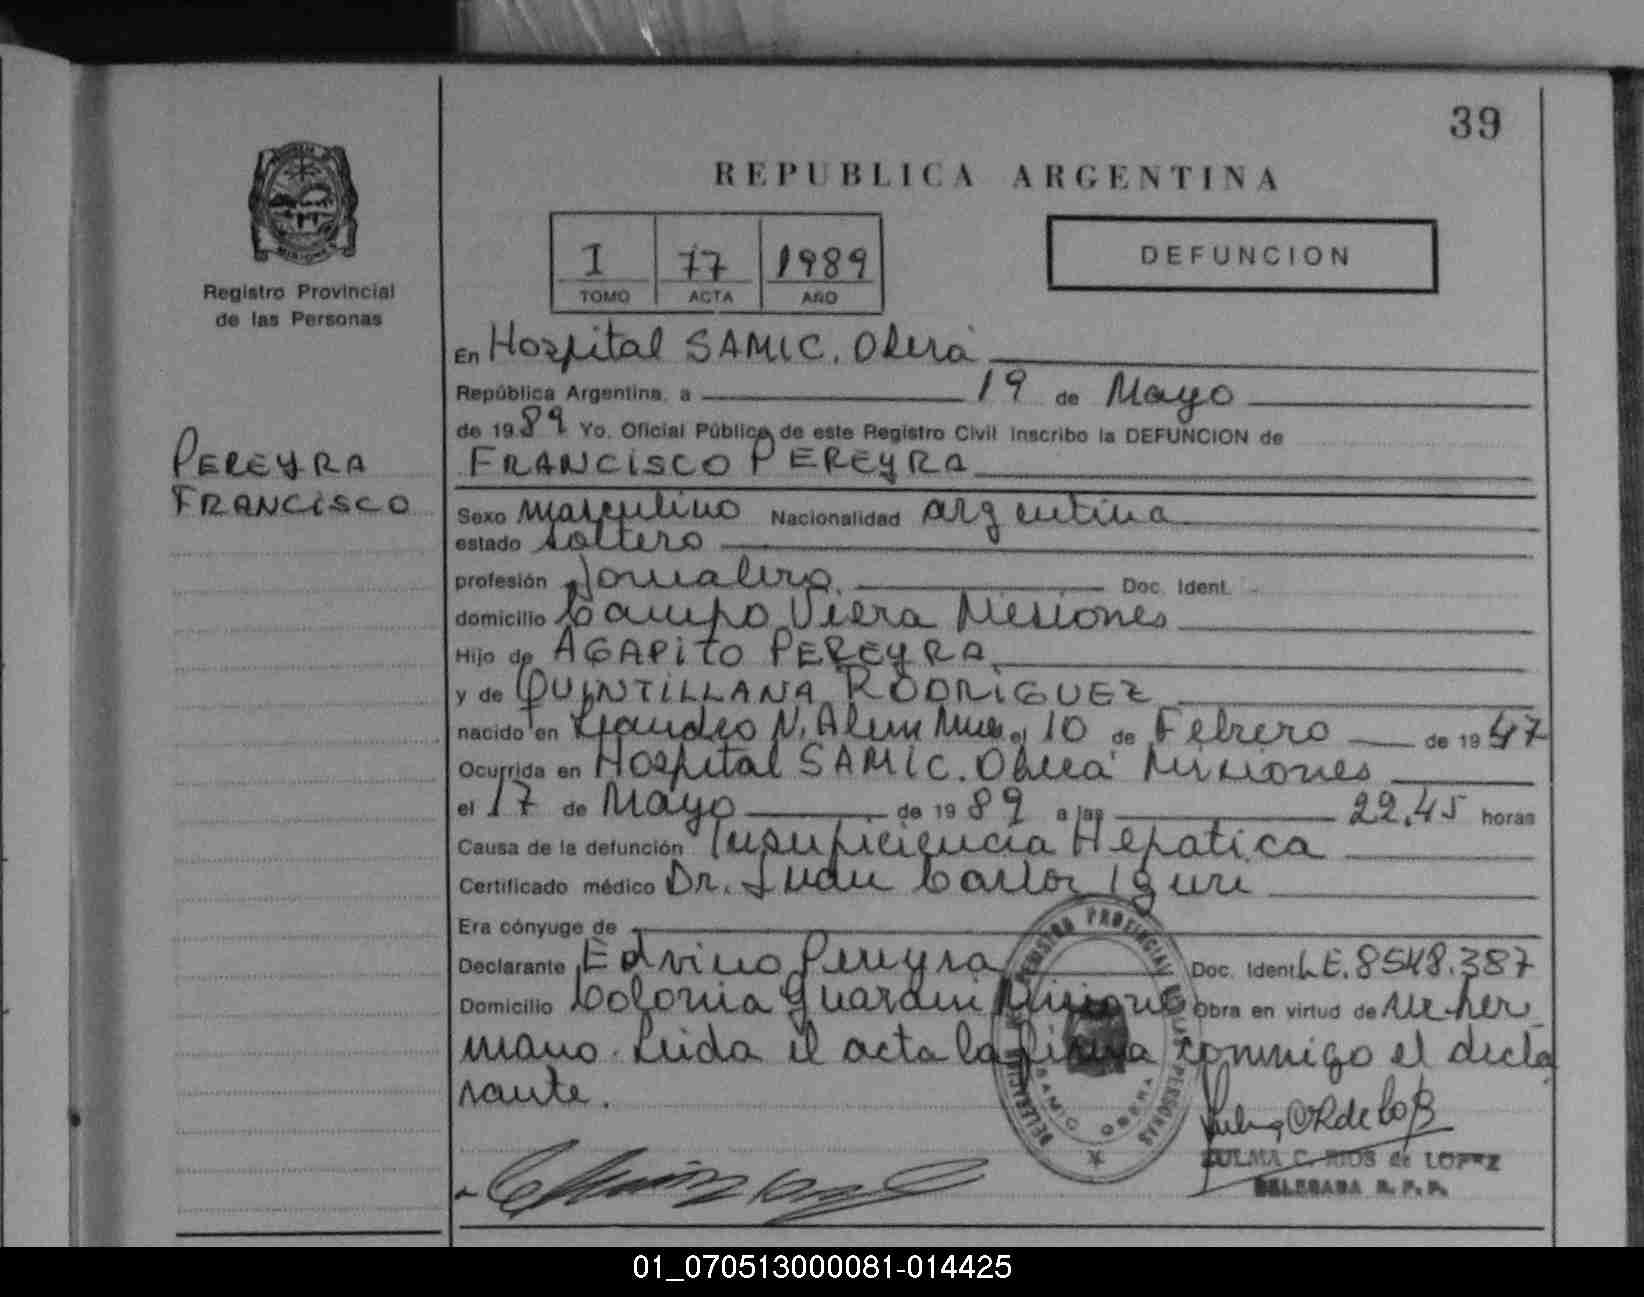 39
REPUBLICA ARGENTINA
I 77 1989
TOMO ACTA AÑO
DEFUNCION
Registro Provincial
de las Personas
PEREYRA
FRANCISCO
En Hospital SAMIC. Oberá
República Argentina, a 19 de Mayo
de 1989 Yo, Oficial Público de este Registro Civil inscribo la DEFUNCION de
FRANCISCO PEREYRA
Sexo masculino Nacionalidad argentina
estado soltero
profesión Jornalero. Doc. Ident.
domicilio Campo Viera Misiones
Hijo de AGAPITO PEREYRA
y de QUINTILLANA RODRIGUEZ
nacido en Leandro N. Alem Mnes. el 10 de Febrero de 1947
Ocurrida en Hospital SAMIC. Oberá Misiones
el 17 de Mayo de 1989 a las 22,45 horas
Causa de la defunción Insuficiencia Hepatica
Certificado médico Dr. Juan Carlos Iguri
Era cónyuge de
Declarante Edvino Pereyra Doc. Ident L.E. 8548.387
Domicilio Colonia Guarani Misiones Obra en virtud de ser her
mano. Leida el acta la firma conmigo el decla
rante.
REGISTRO PROVINCIAL DE LAS PERSONAS
DELEGACION
SAMIC OBERA
ZULMA C. RIOS de LOPEZ
DELEGADA R. P. P.
01_070513000081-014425